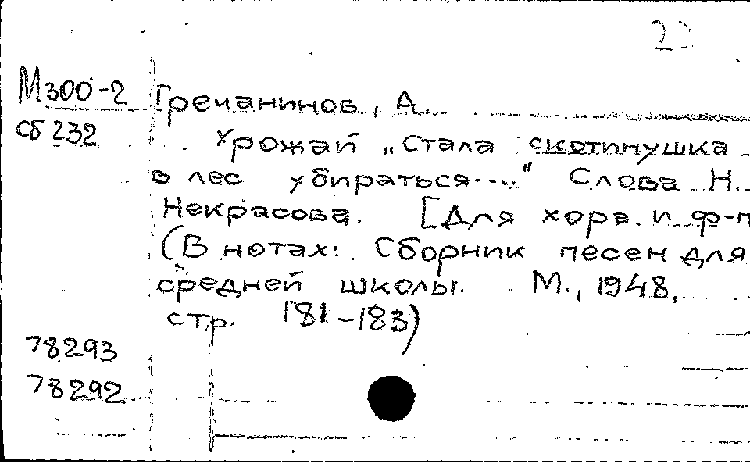 23
М300-2 Гречанинов, А.
Сб 232 Урожай „Стала скотинушка
в лес убираться...." Слова Н.
Некрасова. [Для хора и ф-п
(В нотах: Сборник песен для
средней школы. М., 1948,
стр. 181-183)
78293
78292